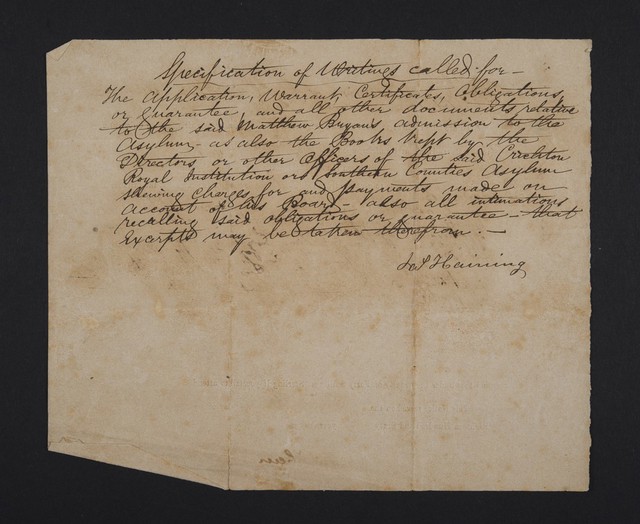 Specification of Writings called for —
The Application, Warrant, Certificates, Obligations,
or Guarantee, and all other documents relative
to the said Matthew Bryan's admission to the
Asylum — as also the Books kept by the
Directors or other Officers of the said Crichton
Royal Institution or Southern Counties Asylum
shewing charges for and payments made on
account of his Board — also all intimations
recalling said obligations or guarantee — that
Excerpts may be taken therefrom. —
Haining